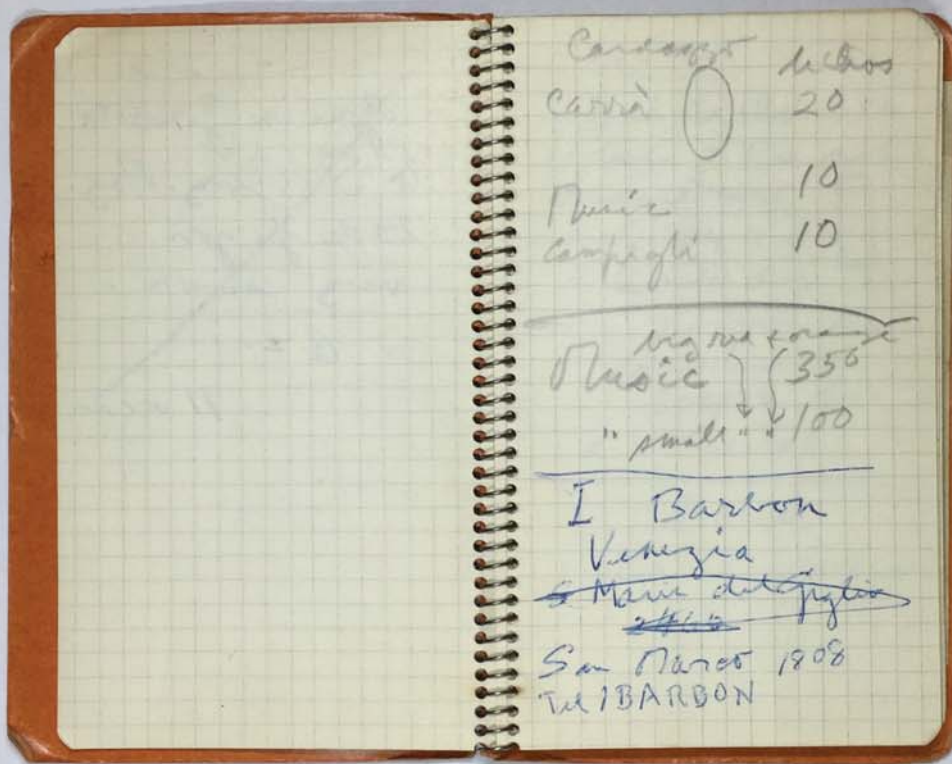 Cardazzo
lithos
Carrà 20
Music 10
Campigli 10
big red & orange
Music 350
" small " " 100
I Barbon
Venezia
S Maria del Giglio
San Marco 1808
Tel IBARBON